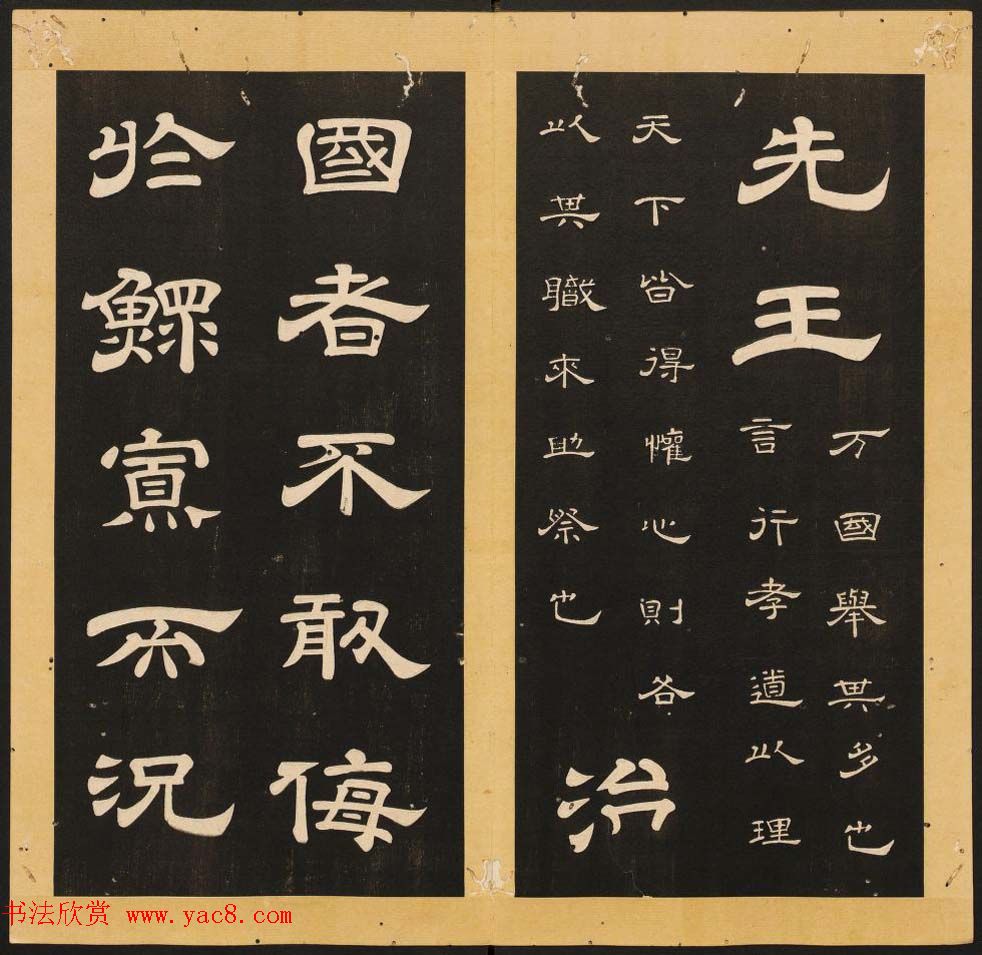 先王
万國舉其多也
言行孝道以理
天下皆得懽心則各
以其職來助祭也
治
國者不敢侮
於鰥寡而況
书法欣赏 www.yac8.com